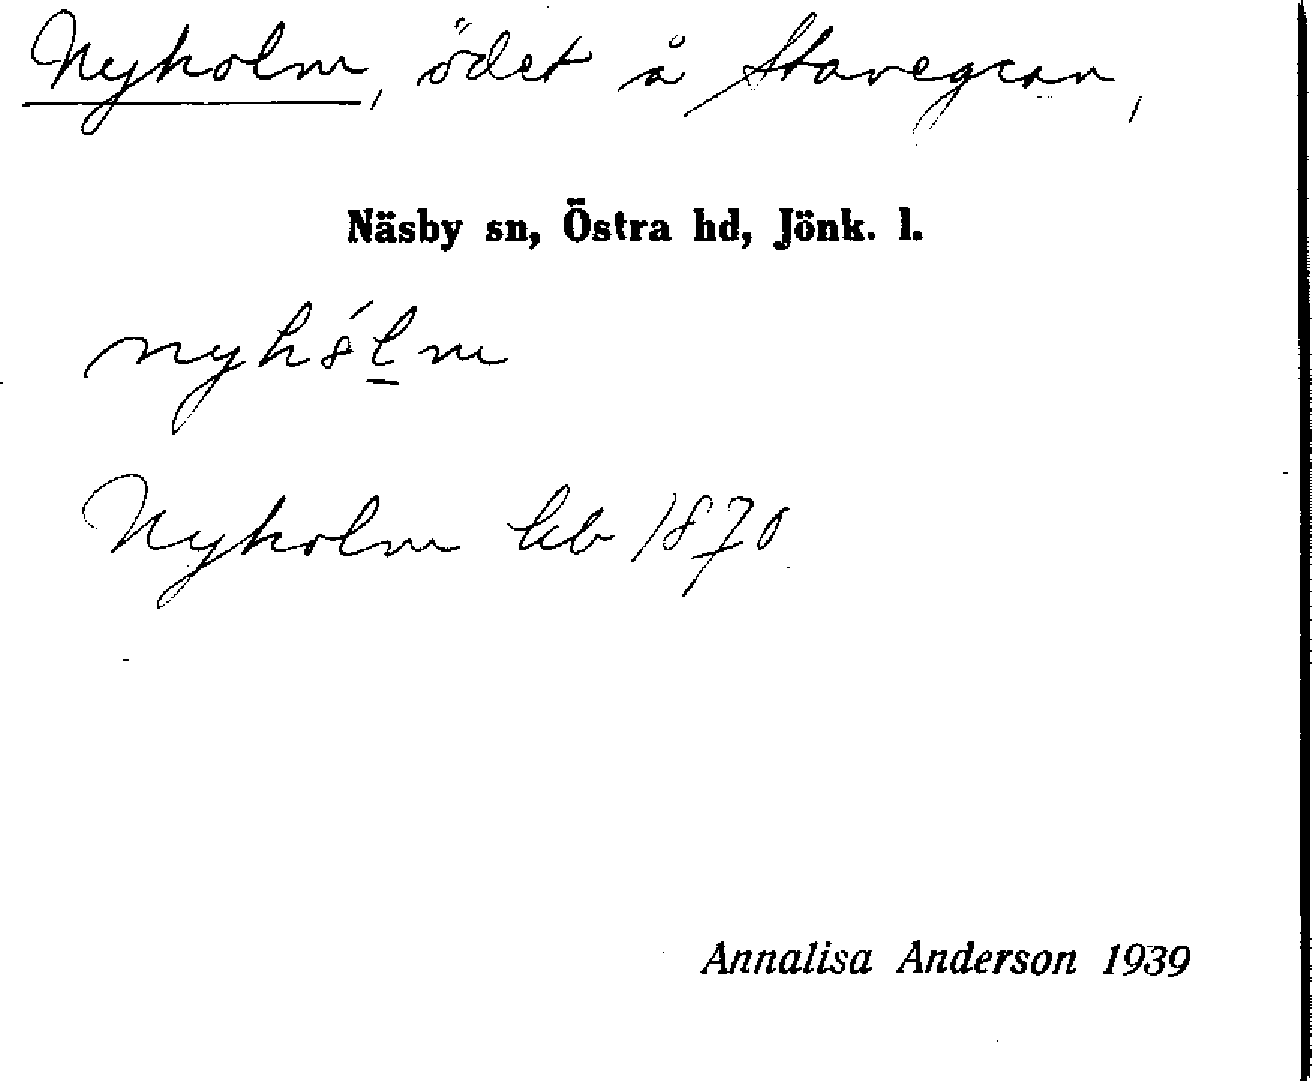 Nyholm, ödet å Stavegran,
Näsby sn, Östra hd, Jönk. l.
nyhólm
Nyholm kb 1870
Annalisa Anderson 1939